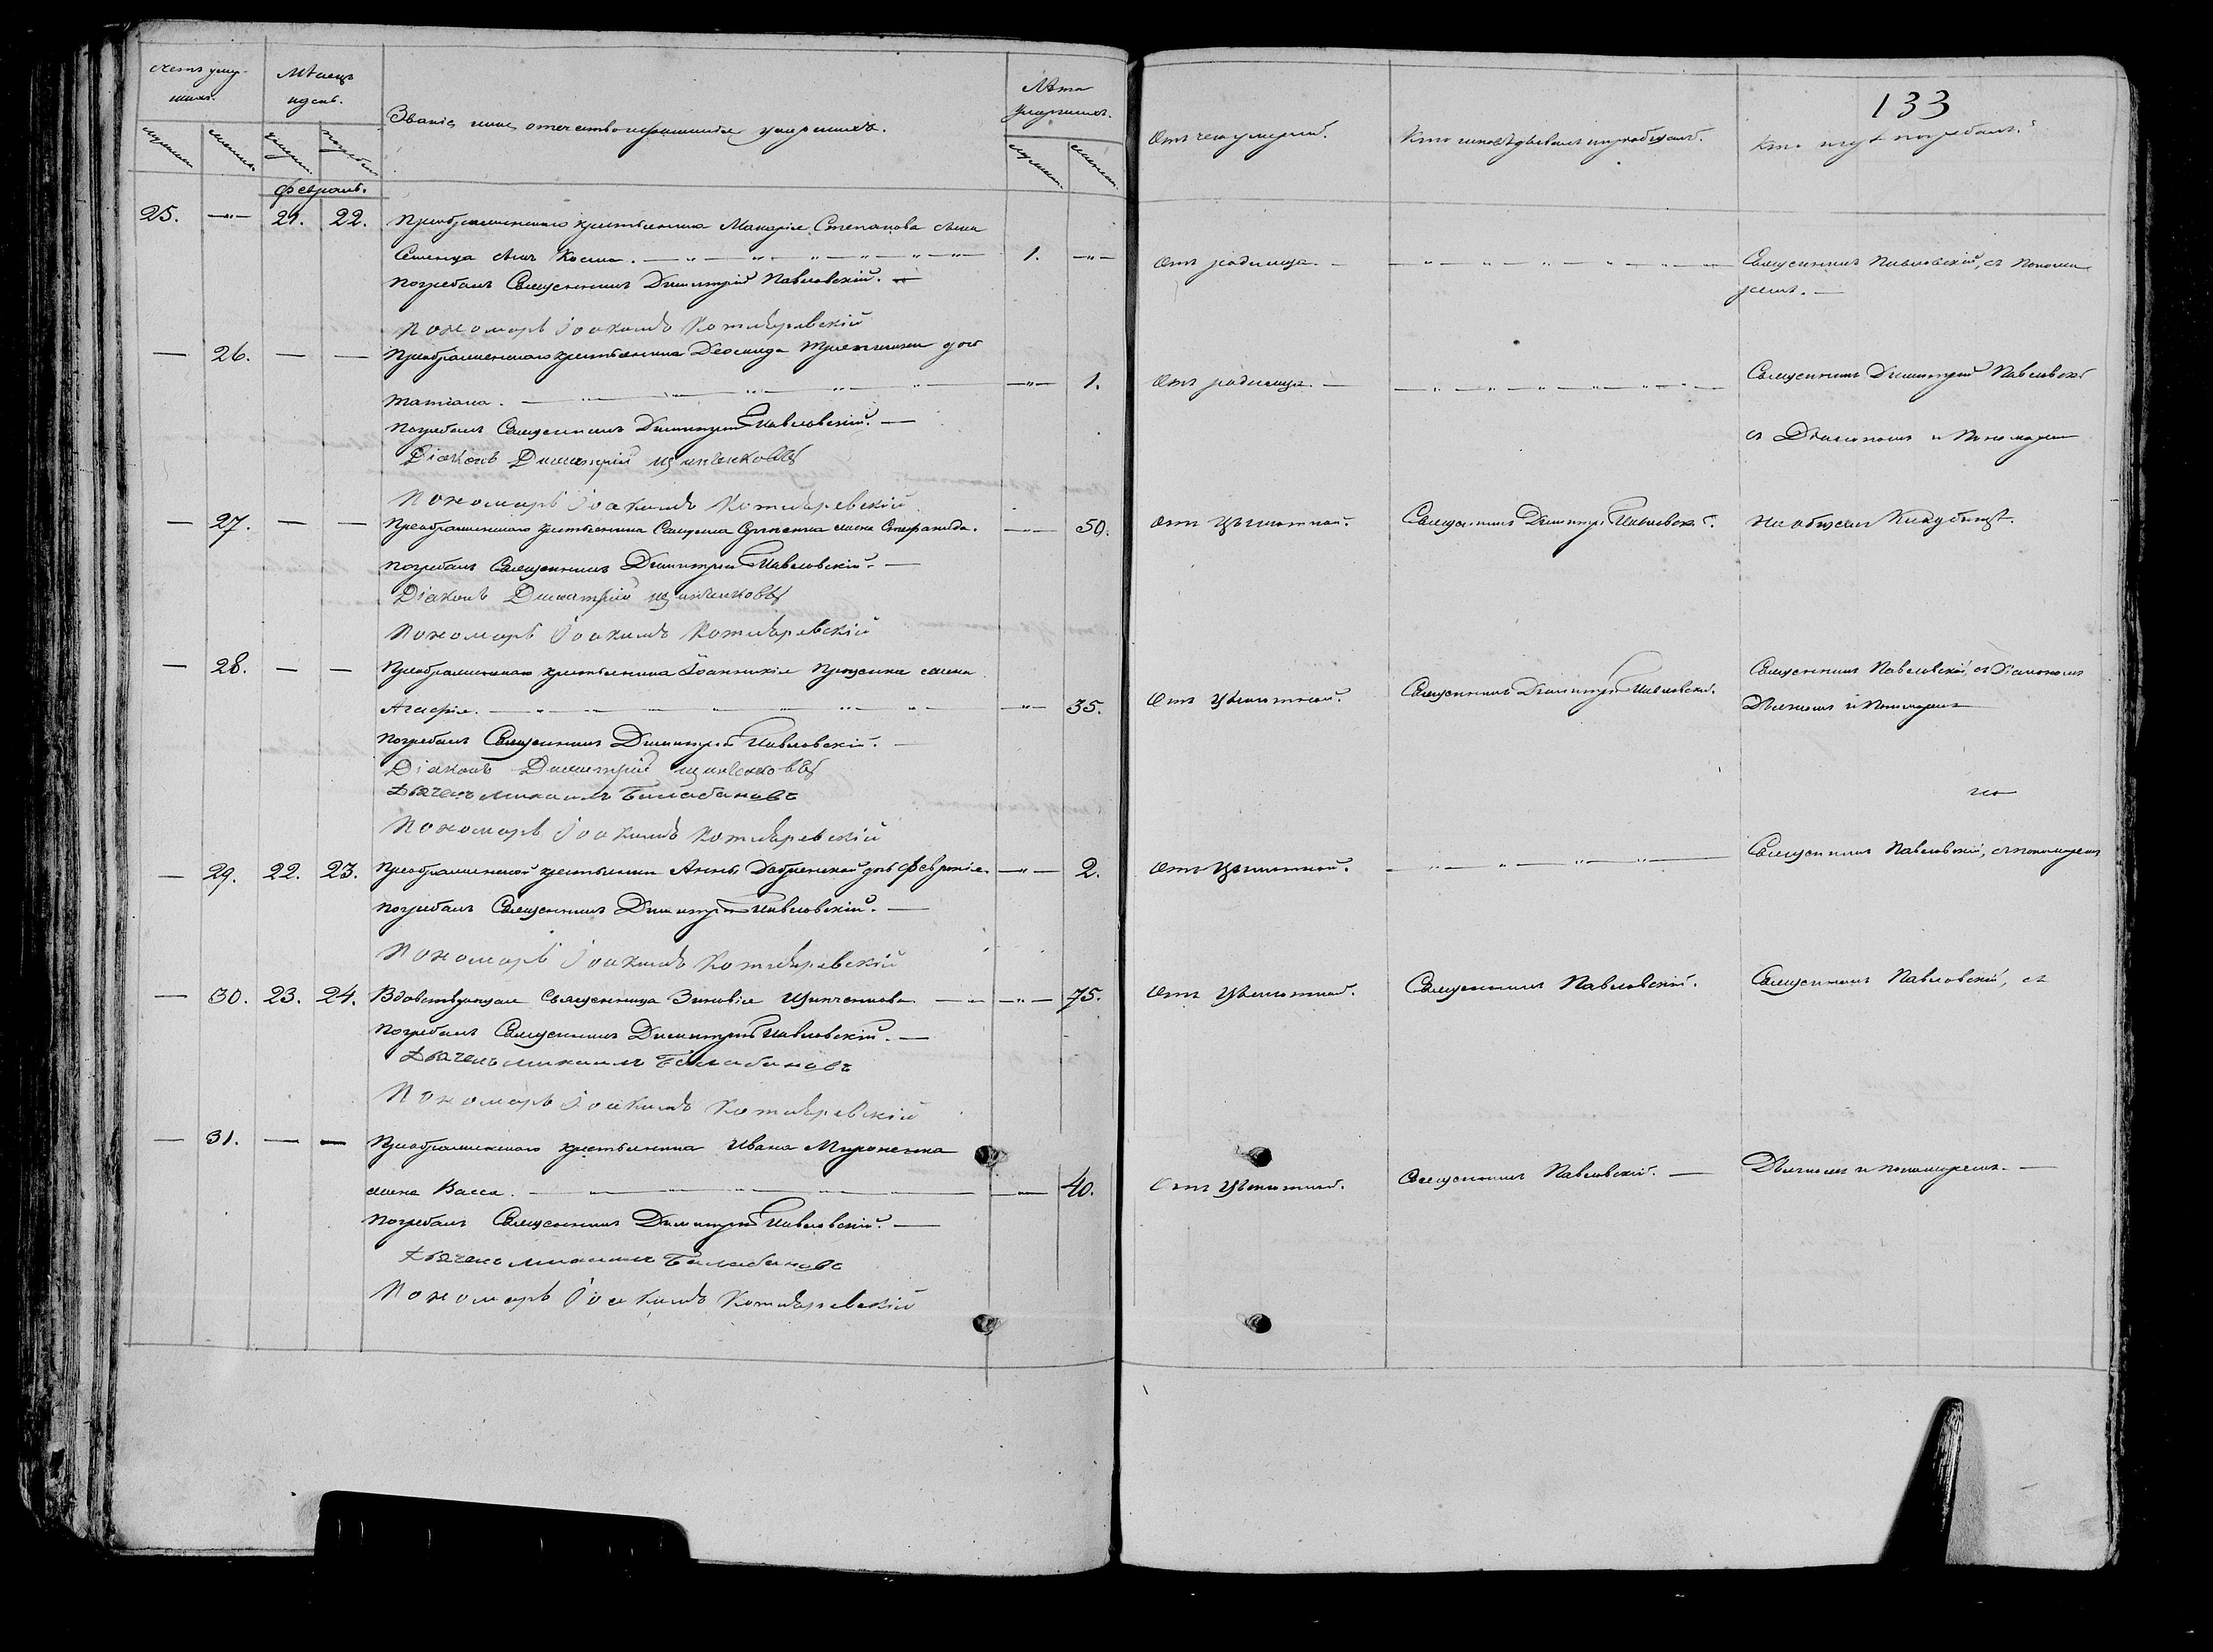 133
Счетъ умершихъ.
Мѣсяцъ и день.
Званіе, имя, отечество и прозваніе умершихъ.
Лѣта умершихъ.
Отъ чего умерший.
Кто исповѣдывалъ и пріобщалъ.
Кто и гдѣ погребалъ.
Февраль.
25. —"— 21. 22. Преображенскаго крестьянина Макарія Степанова сына
Семенца сынъ Косма. 1. —"— Отъ родимца. Священникъ Павловскій, съ Понома
ремъ.
Погребалъ Священникъ Димитрій Павловскій.
Пономарь Іоакимъ Котляревскій
— 26. — — Преображенскаго крестьянина дочь
Татіана. —"— 1. Отъ родимца. Священникъ Димитрій Павловскій
съ Діакономъ и Пономаремъ
Погребалъ Священникъ Димитрій Павловскій.
Діаконъ Димитрій
Пономарь Іоакимъ Котляревскій
— 27. — — Преображенскаго крестьянина жена —"— 50. Отъ Священникъ Димитрій Павловскій. На общемъ кладбищѣ.
Погребалъ Священникъ Димитрій Павловскій.
Діаконъ Димитрій
Пономарь Іоакимъ Котляревскій
— 28. — — Преображенскаго крестьянина Іоанникія жена
Агафія. —"— 35. Отъ Священникъ Димитрій Павловскій. Священникъ Павловскій, съ Діакономъ
Дьячкомъ и Пономаремъ
Погребалъ Священникъ Димитрій Павловскій.
Діаконъ Димитрій
Дьячекъ Михаилъ Балабановъ
Пономарь Іоакимъ Котляревскій
— 29. 22. 23. Преображенской крестьянки Анны дочь Февронія. —"— 2. Отъ Священникъ Павловскій, съ пономаремъ
Погребалъ Священникъ Димитрій Павловскій.
Пономарь Іоакимъ Котляревскій
— 30. 23. 24. Вдовствующая Священница Зиновія —"— 75. Отъ Священникъ Павловскій. Священникъ Павловскій, съ
Погребалъ Священникъ Димитрій Павловскій.
Дьячекъ Михаилъ Балабановъ
Пономарь Іоакимъ Котляревскій
— 31. — — Преображенскаго крестьянина Ивана Мироненка
жена Васса. —"— 40. Отъ Священникъ Павловскій. Дьячкомъ и пономаремъ.
Погребалъ Священникъ Димитрій Павловскій.
Дьячекъ Михаилъ Балабановъ
Пономарь Іоакимъ Котляревскій